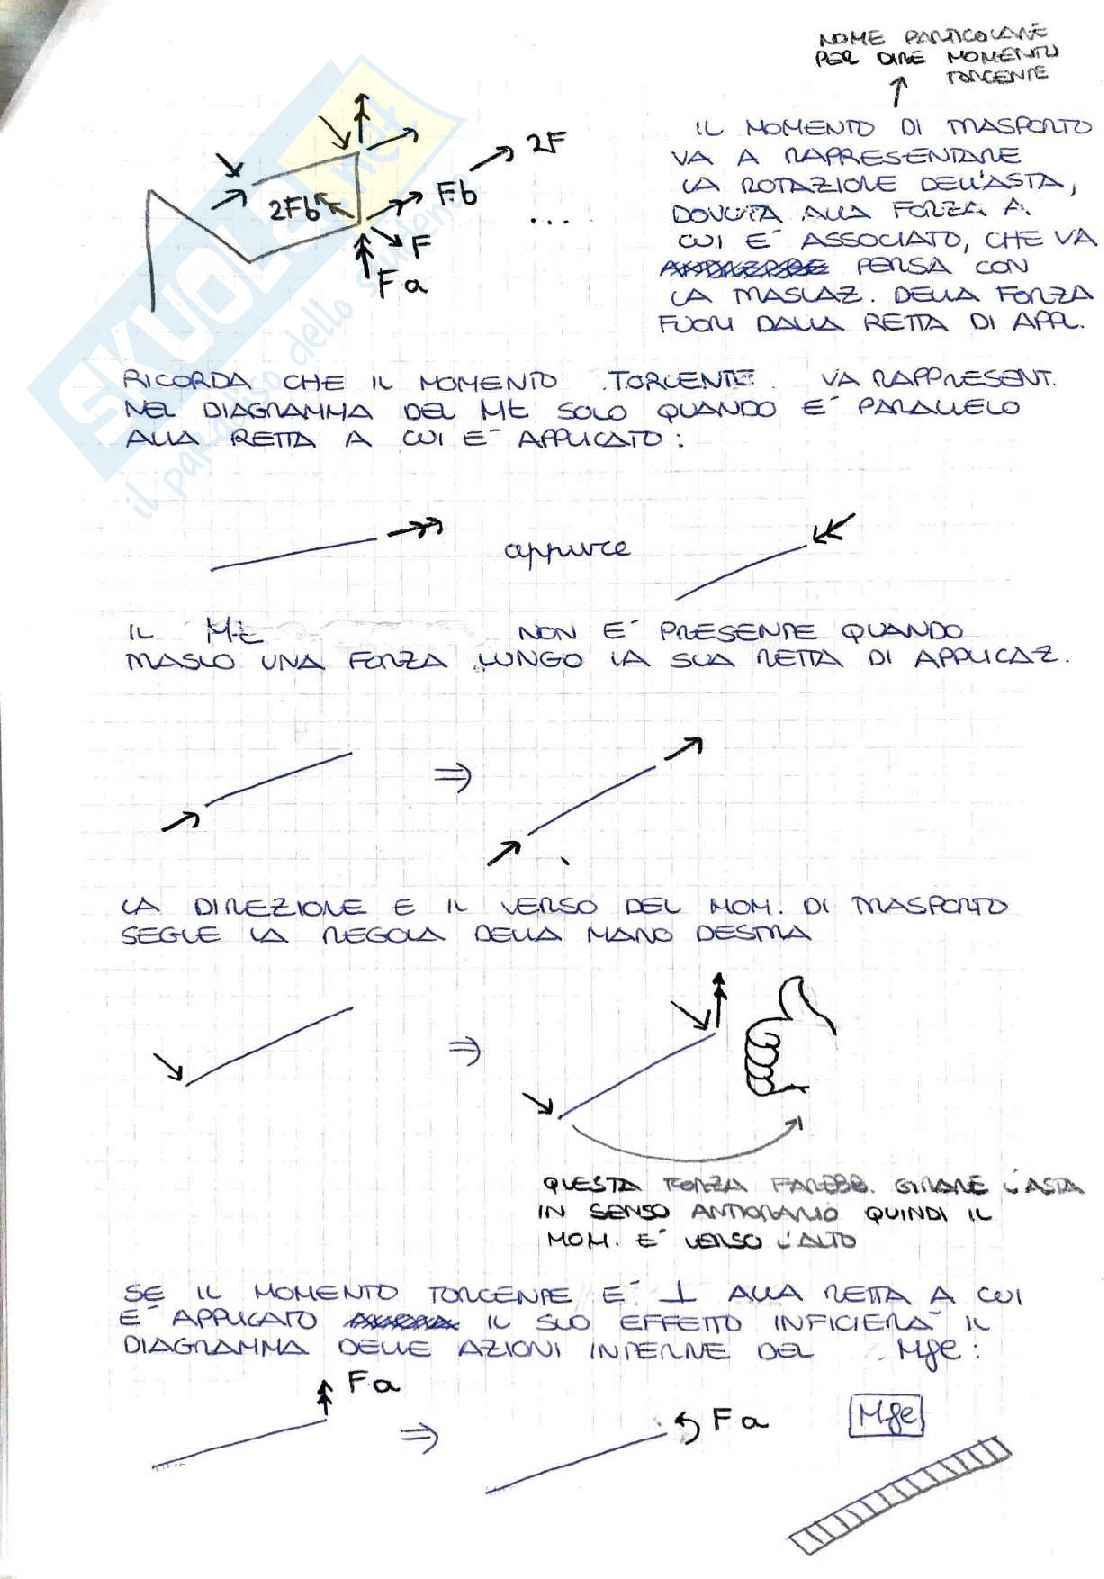 NOME PARTICOLARE
PER DIRE MOMENTO
TORCENTE
IL MOMENTO DI TRASPORTO
VA A RAPRESENTARE
LA ROTAZIONE DELL'ASTA,
DOVUTA ALLA FORZA A
CUI E' ASSOCIATO, CHE VA
PERSA CON
LA TRASLAZ. DELLA FORZA
FUORI DALLA RETTA DI APPL.
2F
Fb
2Fb
...
F
Fa
RICORDA CHE IL MOMENTO TORCENTE VA RAPPRESENT.
NEL DIAGRAMMA DEL Mt SOLO QUANDO E' PARALLELO
ALLA RETTA A CUI E' APPLICATO:
oppure
IL Mt NON E' PRESENTE QUANDO
TRASLO UNA FORZA LUNGO LA SUA RETTA DI APPLICAZ.
⇒
LA DIREZIONE E IL VERSO DEL MOM. DI TRASPORTO
SEGUE LA REGOLA DELLA MANO DESTRA
⇒
QUESTA FORZA FAREBB. GIRARE L'ASTA
IN SENSO ANTIORARIO QUINDI IL
MOM. E' VERSO L'ALTO
SE IL MOMENTO TORCENTE E' ⊥ ALLA RETTA A CUI
E' APPLICATO IL SUO EFFETTO INFICIERA' IL
DIAGRAMMA DELLE AZIONI INTERNE DEL Mfe:
Fa
⇒
Fa
Mfe
SKUOLA.net
il paradiso dello studente